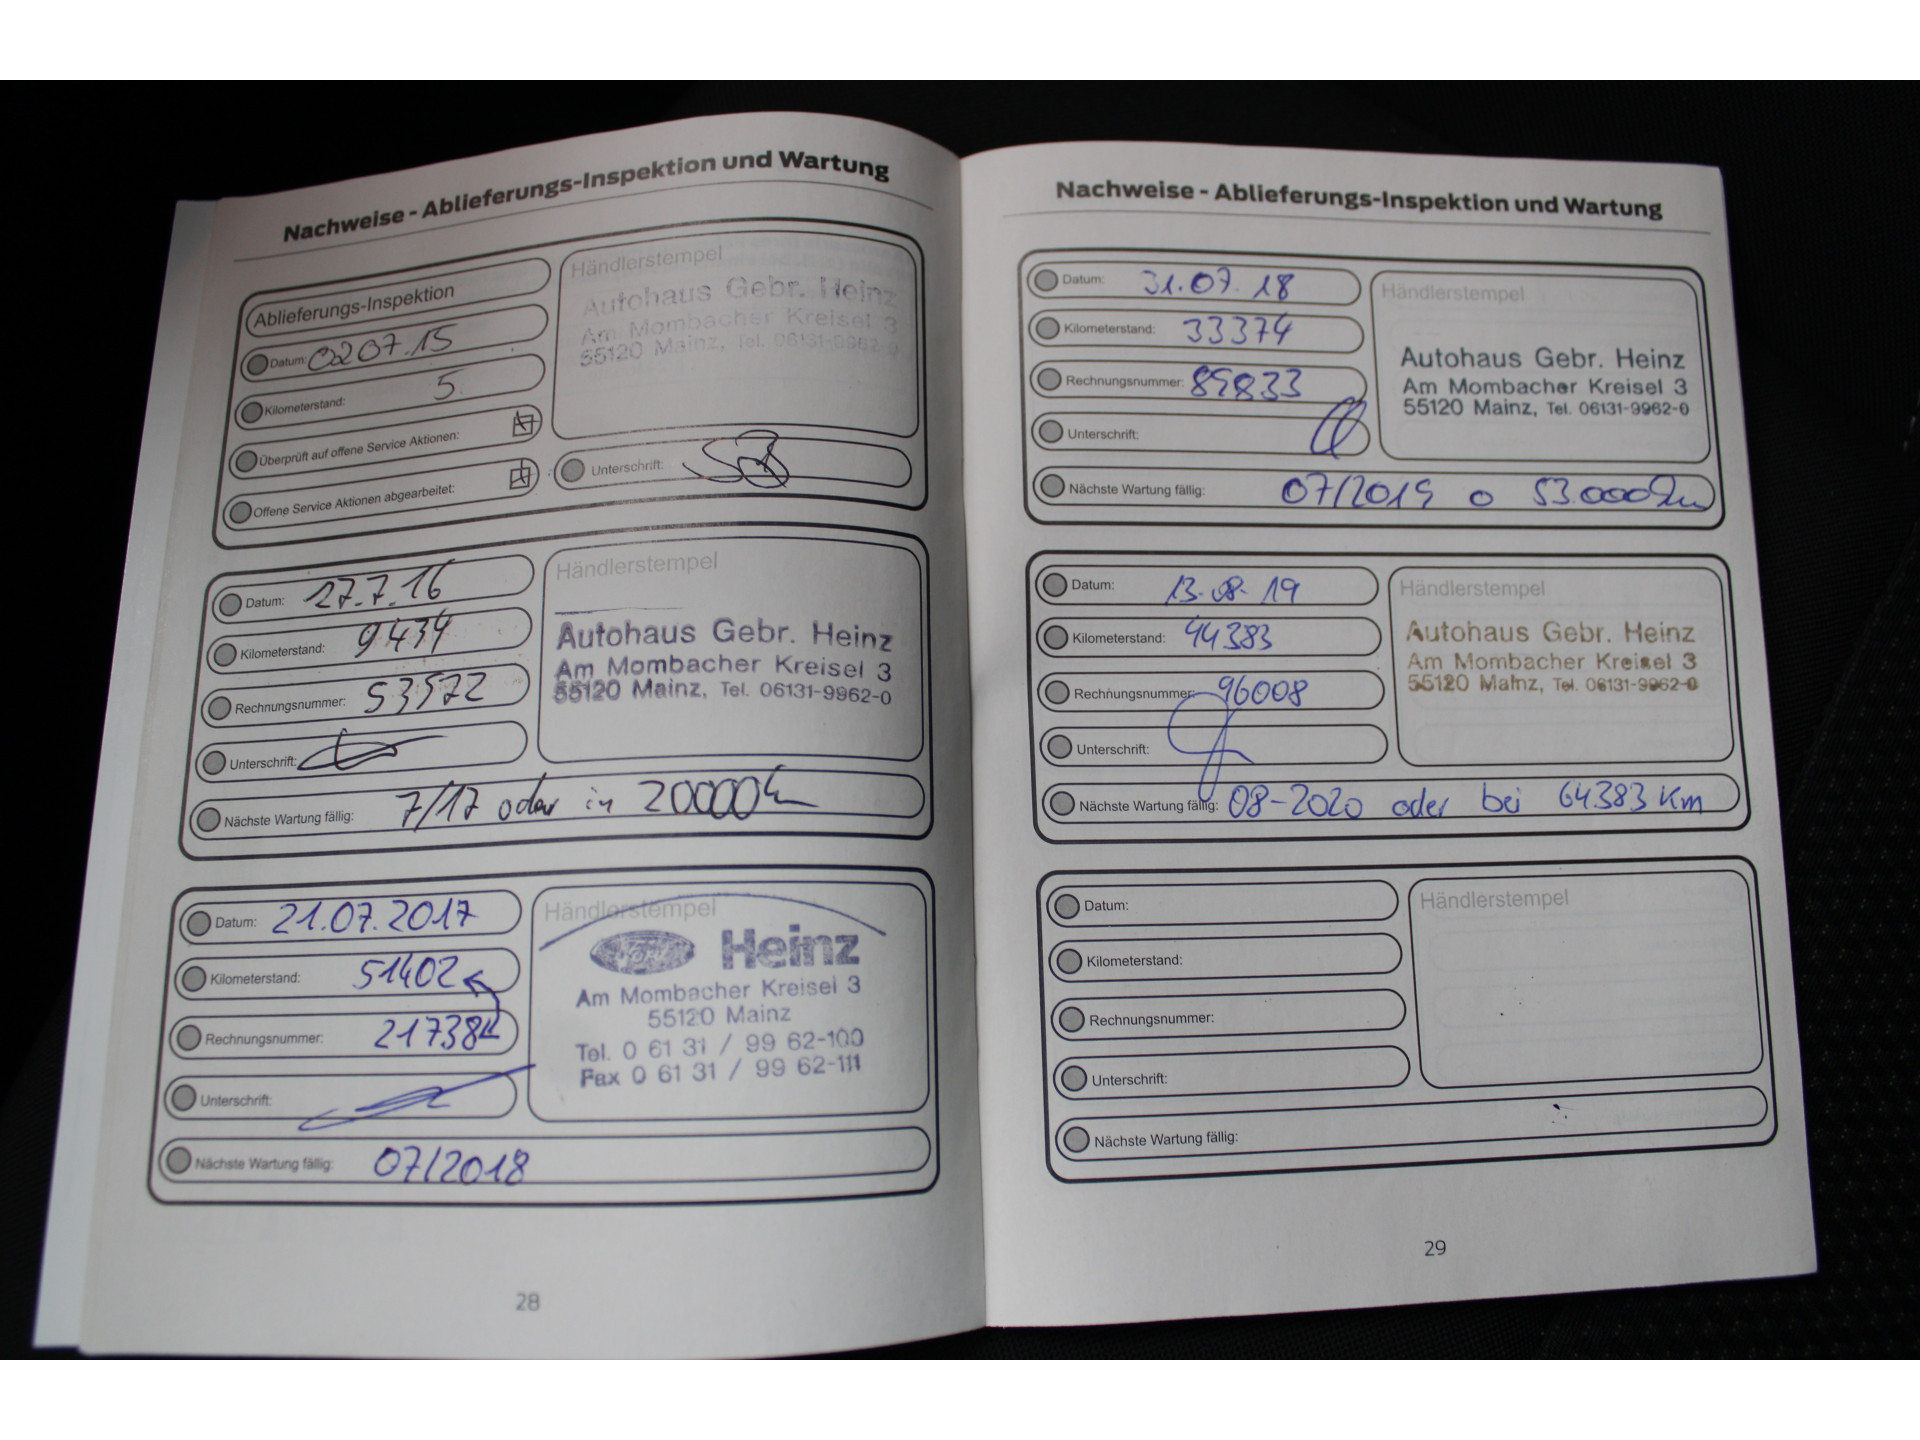 Nachweise - Ablieferungs-Inspektion und Wartung
Ablieferungs-Inspektion
Datum: 02 07.15
Kilometerstand: 5
Überprüft auf offene Service Aktionen:
Offene Service Aktionen abgearbeitet:
Händlerstempel
Autohaus Gebr. Heinz
Am Mombacher Kreisel 3
55120 Mainz, Tel. 06131-9962-0
Unterschrift:
Datum: 27.7.16
Kilometerstand: 9434
Rechnungsnummer: 53572
Unterschrift:
Händlerstempel
Autohaus Gebr. Heinz
Am Mombacher Kreisel 3
55120 Mainz, Tel. 06131-9962-0
Nächste Wartung fällig: 7/17 oder in 20000km
Datum: 21.07.2017
Kilometerstand: 51402
Rechnungsnummer: 21738
Unterschrift:
Händlerstempel
Ford Heinz
Am Mombacher Kreisel 3
55120 Mainz
Tel. 0 61 31 / 99 62-100
Fax 0 61 31 / 99 62-111
Nächste Wartung fällig: 07/2018
28
Nachweise - Ablieferungs-Inspektion und Wartung
Datum: 31.07.18
Kilometerstand: 33374
Rechnungsnummer: 89833
Unterschrift:
Händlerstempel
Autohaus Gebr. Heinz
Am Mombacher Kreisel 3
55120 Mainz, Tel. 06131-9962-0
Nächste Wartung fällig: 07/2019 o 53.000km
Datum: 13.08.19
Kilometerstand: 44383
Rechnungsnummer: 96008
Unterschrift:
Händlerstempel
Autohaus Gebr. Heinz
Am Mombacher Kreisel 3
55120 Mainz, Tel. 06131-9962-0
Nächste Wartung fällig: 08-2020 oder bei 64383 Km
Datum:
Kilometerstand:
Rechnungsnummer:
Unterschrift:
Händlerstempel
Nächste Wartung fällig:
29